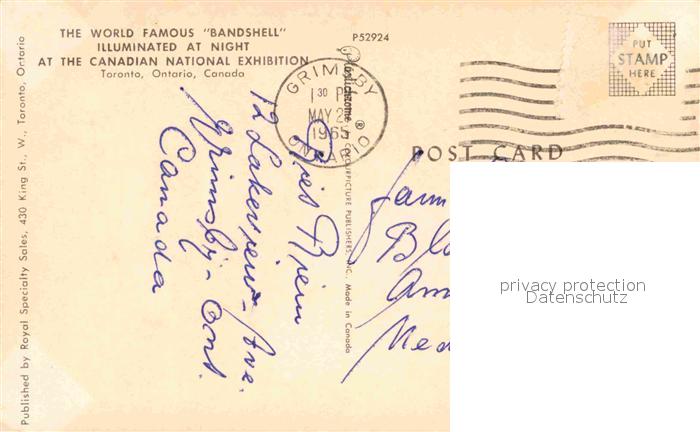 THE WORLD FAMOUS "BANDSHELL"
ILLUMINATED AT NIGHT
AT THE CANADIAN NATIONAL EXHIBITION
Toronto, Ontario, Canada
P52924
Published by Royal Specialty Sales, 430 King St., W., Toronto, Ontario
Plastichrome ® BY COLOURPICTURE PUBLISHERS, INC. Made in Canada
GRIMSBY
1 30 P
MAY 2
1965
ONTARIO
PUT
STAMP
HERE
POST CARD
12 Lakeview-Ave.
Grimsby-Ont.
Canada
Fam
Blo
Am
Ned
privacy protection
Datenschutz